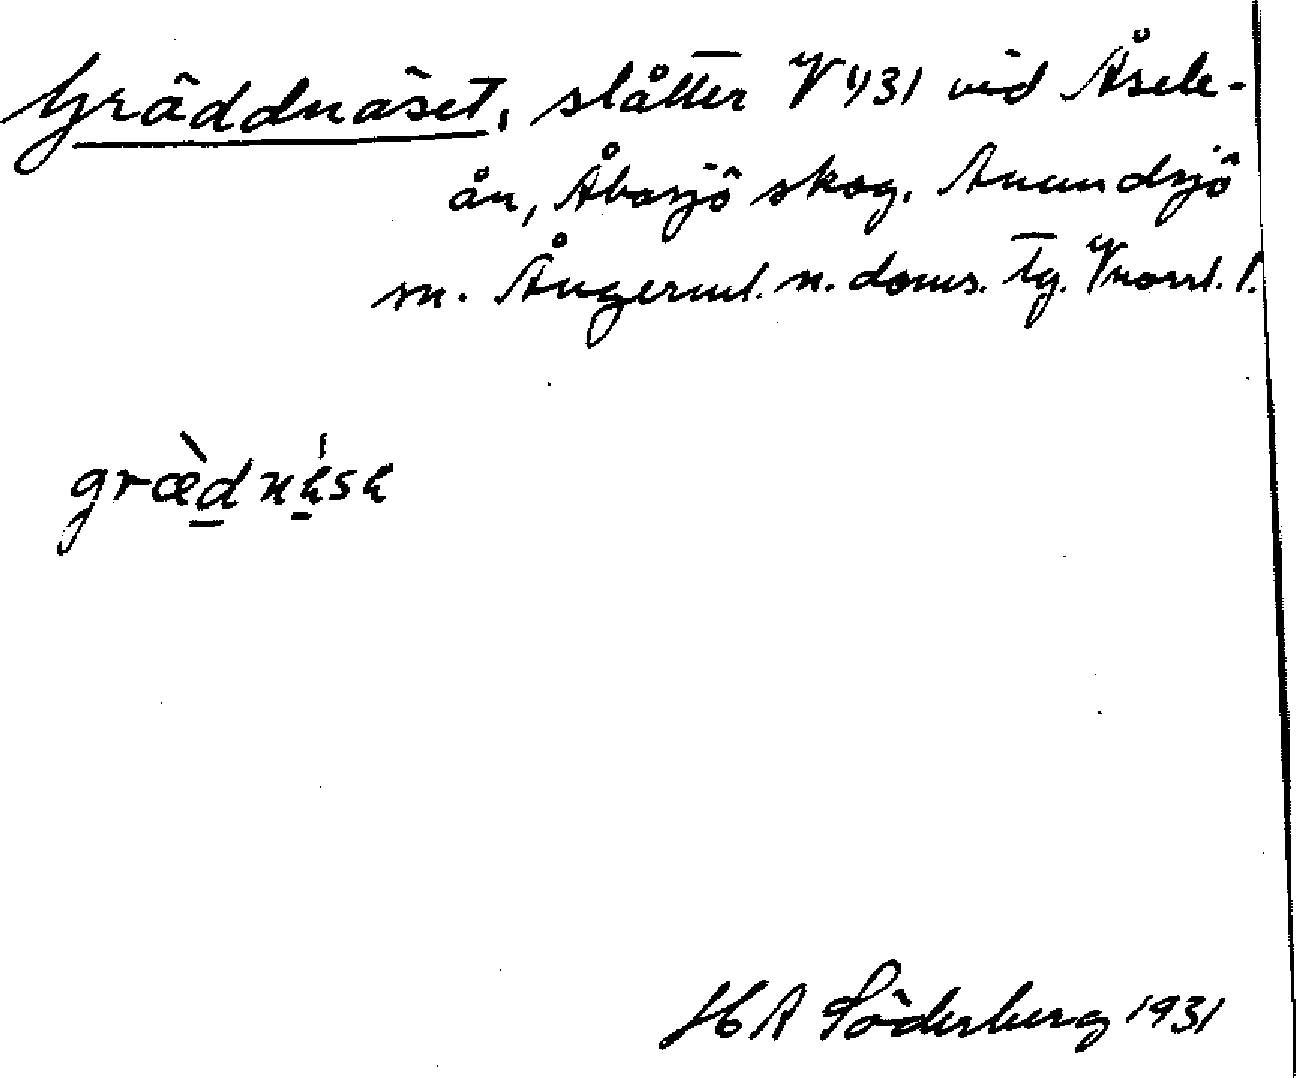 Gräddnäset, slåtter V 431 vid Åsele-
ån, Åbosjö skog, Anundsjö
sn. Ångerml. n. doms. tg. Vnorrl. l.
græ̀dnésе
H A Söderberg 1931